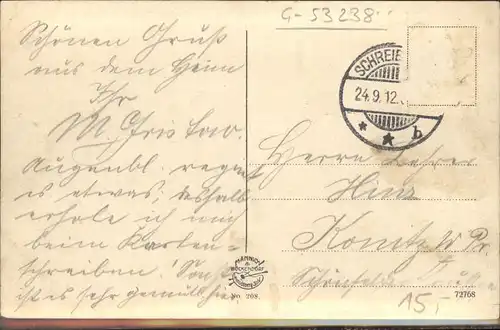 G-53238
Schönen Gruß
aus dem Heim
Ihr
M.
Augenbl. regnet
es etwas, deshalb
erhole ich mich
beim Karten-
schreiben! Sonst
ist es sehr gemütl. hier
SCHREIB
24.9.12.
* * b
Herrn Lehrer
Hinz
Konitz W. Pr.
MÄNNICH & HÖCKENDORF
No. 208.
72768
15,-